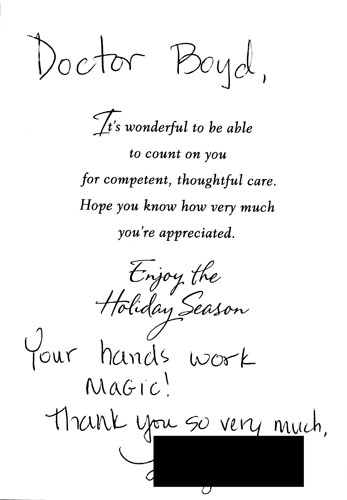 Doctor Boyd,
It's wonderful to be able
to count on you
for competent, thoughtful care.
Hope you know how very much
you're appreciated.
Enjoy the
Holiday Season
Your hands work
MAGIC!
Thank you so very much,